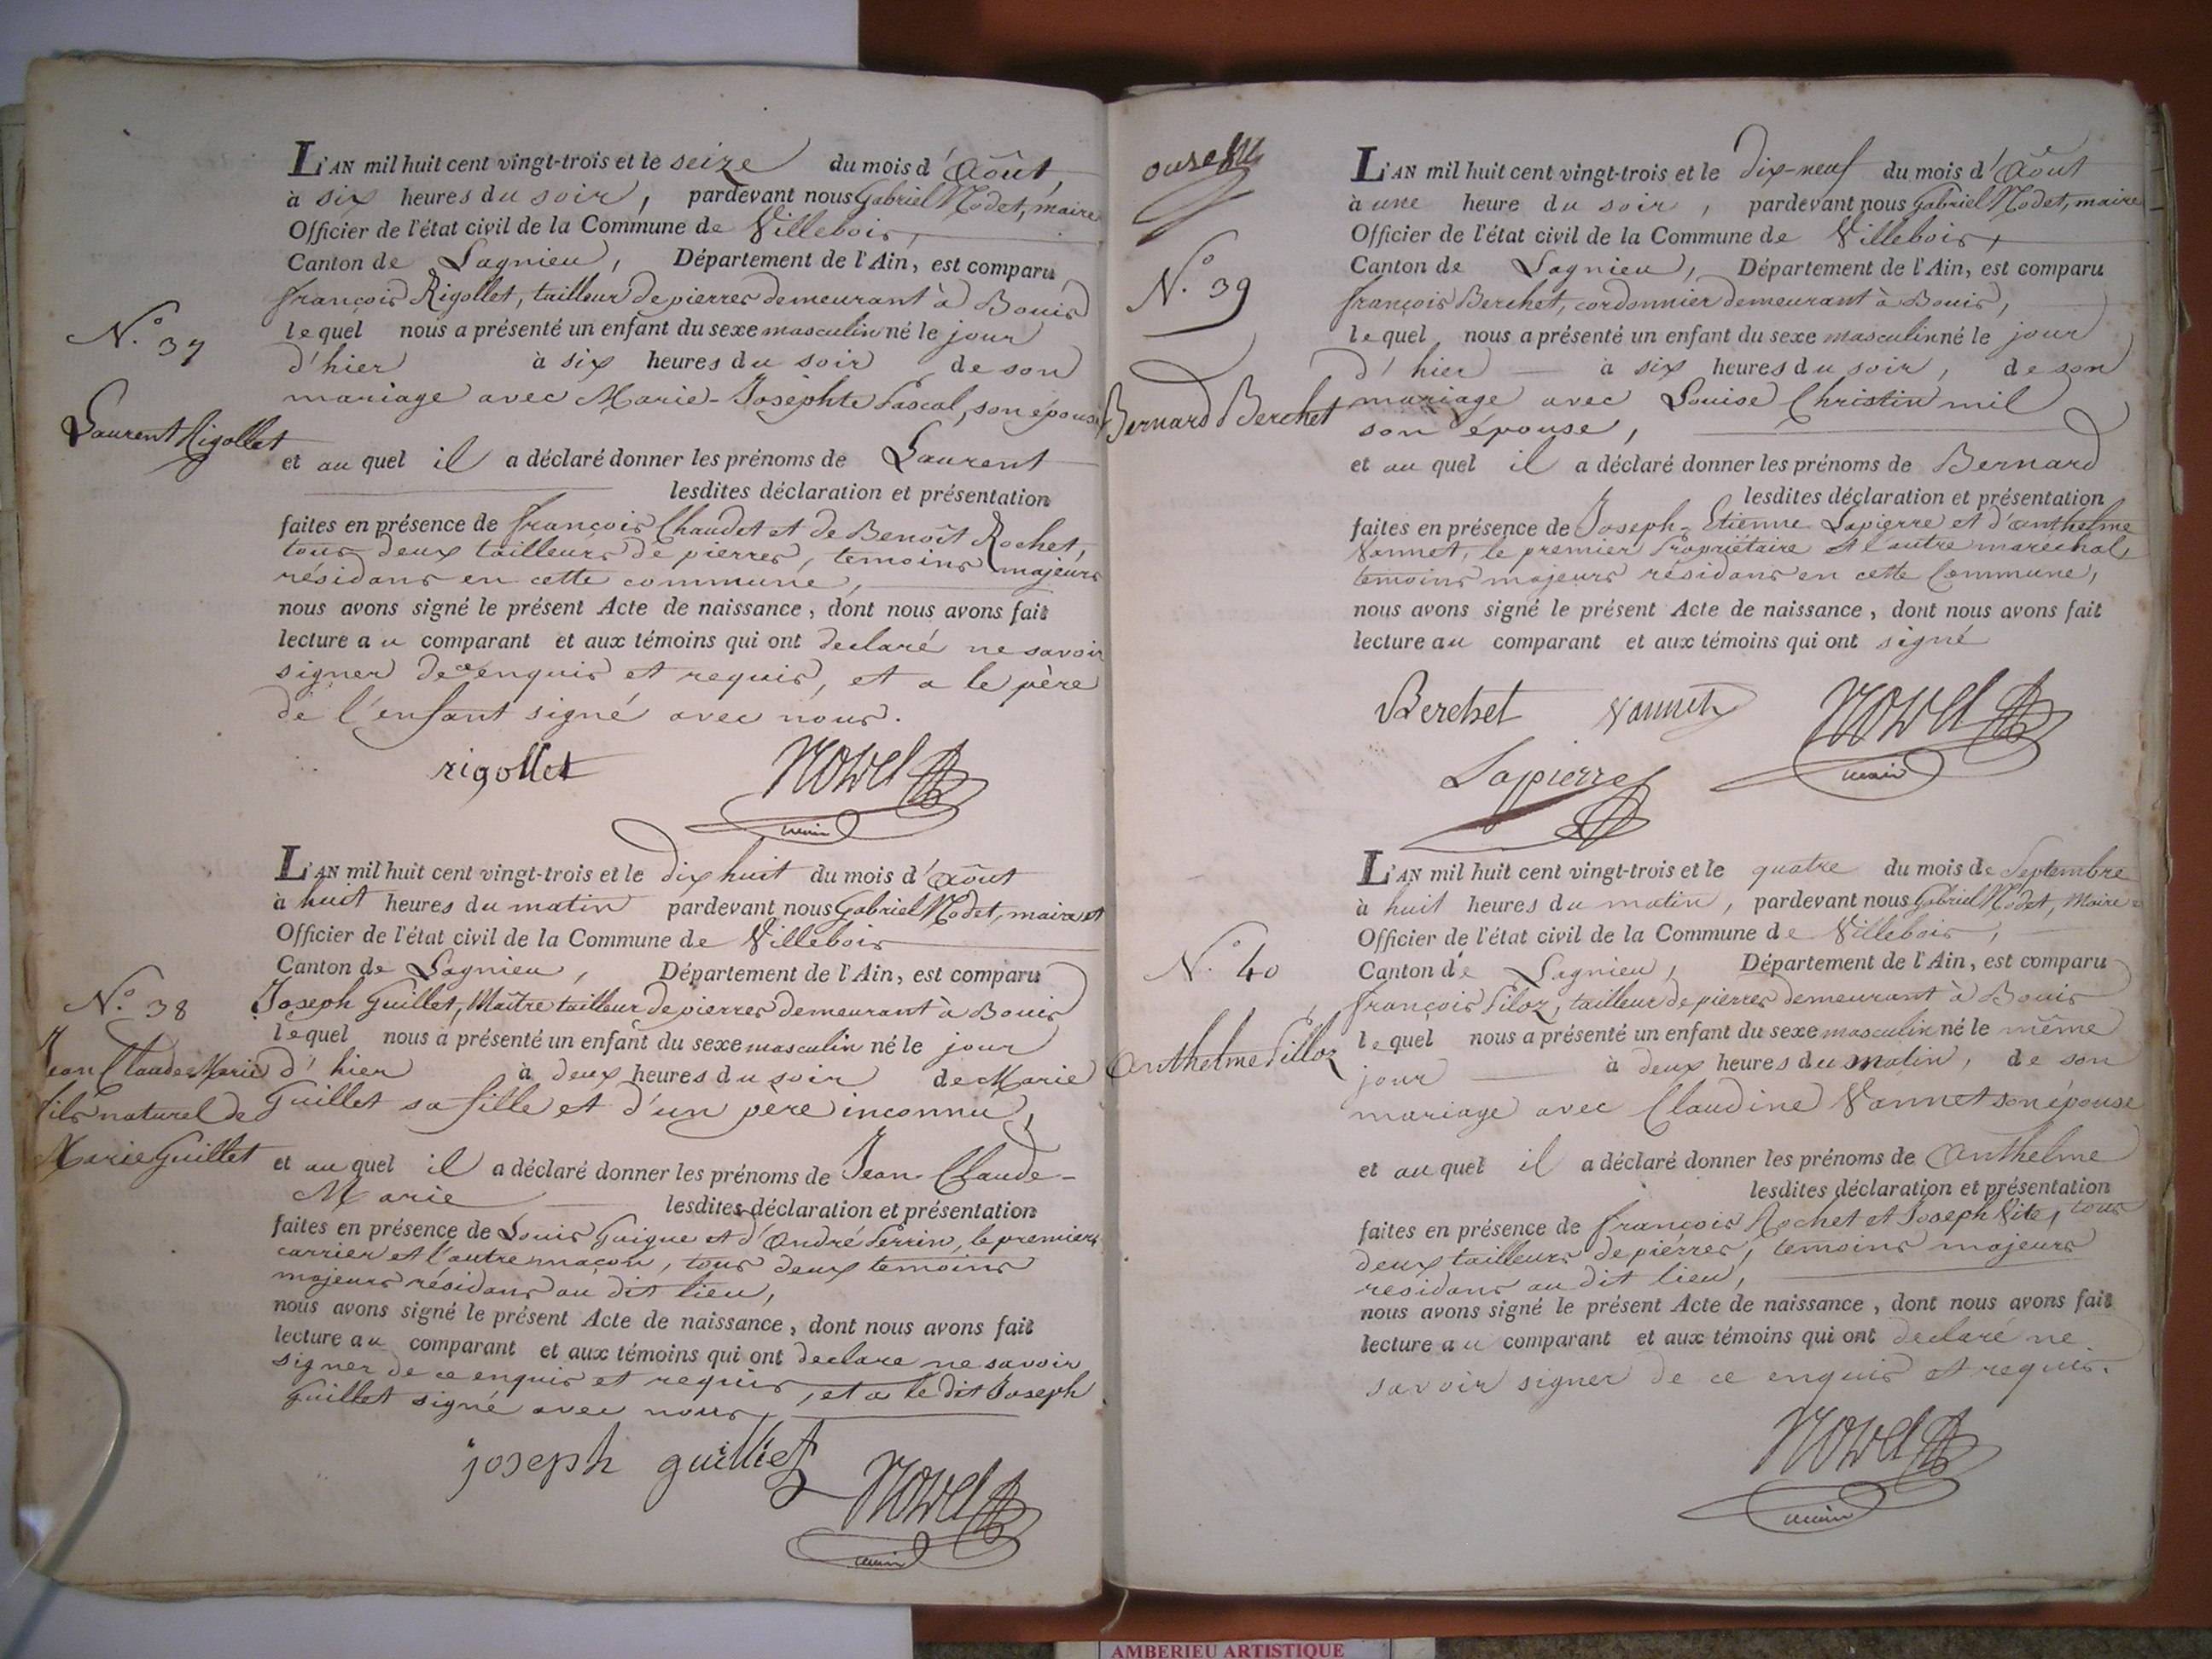 L'AN mil huit cent vingt-trois et le seize du mois d'Août,
à six heures du soir, pardevant nous Gabriel Nodet, maire
Officier de l'état civil de la Commune de Villebois,
Canton de Lagnieu, Département de l'Ain, est comparu
françois Rigollet, tailleur de pierres demeurant à Bouis
lequel nous a présenté un enfant du sexe masculin né le jour
d'hier à six heures du soir de son
mariage avec Marie-Josephte Pascal, son épouse
et au quel il a déclaré donner les prénoms de Laurent
lesdites déclaration et présentation
faites en présence de françois Chaudet et de Benoît Rochet,
tous deux tailleurs de pierres, temoins majeurs
résidans en cette commune,
nous avons signé le présent Acte de naissance, dont nous avons fait
lecture au comparant et aux témoins qui ont declaré ne savoir
signer de ce enquis et requis, et a le père
de l'enfant signé avec nous.
rigollet
maire
N.o 37
Laurent Rigollet
L'AN mil huit cent vingt-trois et le dix huit du mois d'Août
à huit heures du matin pardevant nous Gabriel Nodet, maire et
Officier de l'état civil de la Commune de Villebois
Canton de Lagnieu, Département de l'Ain, est comparu
Joseph Guillet, Maître tailleur de pierres demeurant à Bouis
lequel nous a présenté un enfant du sexe masculin né le jour
d'hier à deux heures du soir de Marie
Guillet sa fille et d'un père inconnu,
et au quel il a déclaré donner les prénoms de Jean Claude-
Marie lesdites déclaration et présentation
faites en présence de Louis Guigue et d'André Perrin, le premier
carrier et l'autre maçon, tous deux temoins
majeurs résidans au dit lieu,
nous avons signé le présent Acte de naissance, dont nous avons fait
lecture au comparant et aux témoins qui ont declare ne savoir
signer de ce enquis et requis, et a le dit Joseph
Guillet signé avec nous,
joseph guillet
maire
N.o 38
Jean Claude Marie
fils naturel de
Marie Guillet
L'AN mil huit cent vingt-trois et le dix-neuf du mois d'Août
à une heure du soir, pardevant nous Gabriel Nodet, maire
Officier de l'état civil de la Commune de Villebois,
Canton de Lagnieu, Département de l'Ain, est comparu
françois Berchet, cordonnier demeurant à Bouis,
lequel nous a présenté un enfant du sexe masculin né le jour
d'hier à six heures du soir, de son
mariage avec Louise Christin mil
son épouse,
et au quel il a déclaré donner les prénoms de Bernard
lesdites déclaration et présentation
faites en présence de Joseph-Etienne Lapierre et d'anthelme
Vannet, le premier Propriétaire et l'autre maréchal,
temoins majeurs résidans en cette Commune,
nous avons signé le présent Acte de naissance, dont nous avons fait
lecture au comparant et aux témoins qui ont signé
Berchet Vannet
Lapierre
maire
N.o 39
Bernard Berchet
L'AN mil huit cent vingt-trois et le quatre du mois de Septembre
à huit heures du matin, pardevant nous Gabriel Nodet, Maire
Officier de l'état civil de la Commune de Villebois,
Canton de Lagnieu, Département de l'Ain, est comparu
françois Piloz, tailleur de pierres demeurant à Bouis
lequel nous a présenté un enfant du sexe masculin né le même
jour à deux heures du matin, de son
mariage avec Claudine Vannet son épouse
et au quel il a déclaré donner les prénoms de Anthelme
lesdites déclaration et présentation
faites en présence de françois Rochet et Joseph Vite, tous
deux tailleurs de pierres, temoins majeurs
residans au dit lieu,
nous avons signé le présent Acte de naissance, dont nous avons fait
lecture au comparant et aux témoins qui ont declaré ne
savoir signer de ce enquis et requis.
maire
N.o 40
Anthelme Pilloz
AMBERIEU ARTISTIQUE